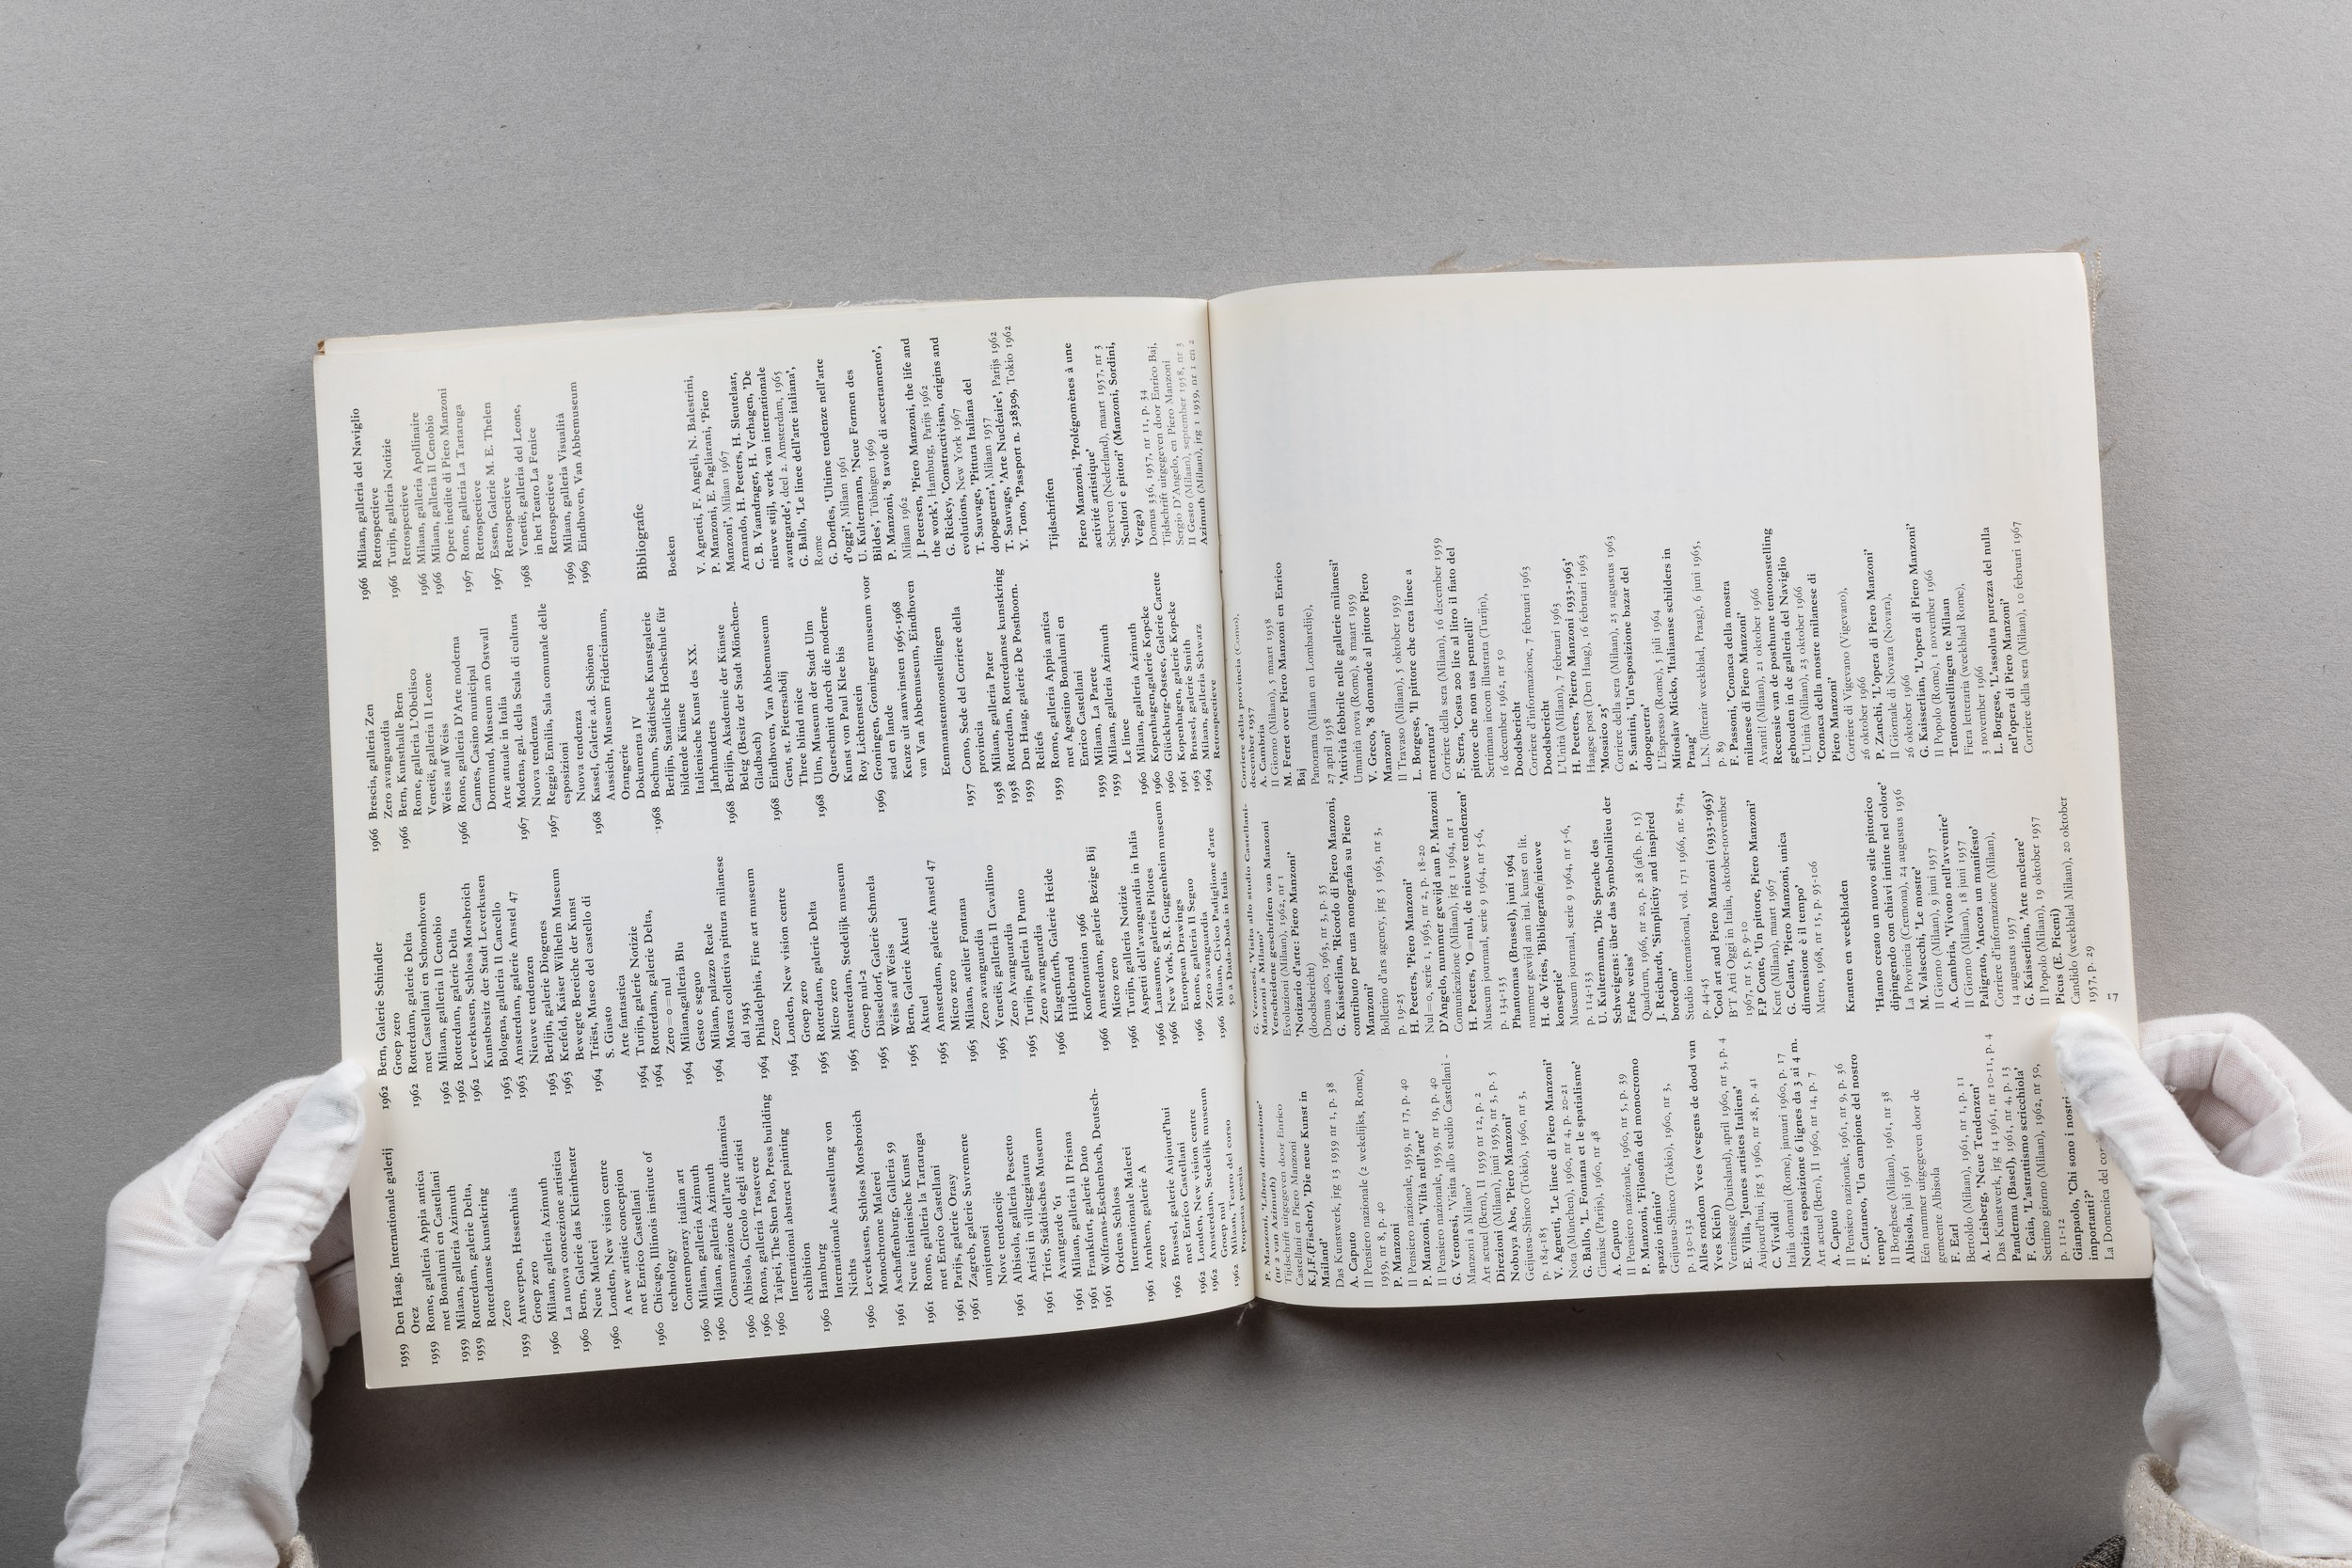 1959 Den Haag, Internationale galerij
Orez
1959 Rome, galleria Appia antica
met Bonalumi en Castellani
1959 Milaan, galleria Azimuth
1959 Rotterdam, galerie Delta,
Rotterdamse kunstkring
Zero
1959 Antwerpen, Hessenhuis
Groep zero
1960 Milaan, galleria Azimuth
La nuova concezione artistica
1960 Bern, Galerie das Kleintheater
Neue Malerei
1960 London, New vision centre
A new artistic conception
met Enrico Castellani
1960 Chicago, Illinois institute of
technology
Contemporary italian art
1960 Milaan, galleria Azimuth
1960 Milaan, galleria Azimuth
Consumazione dell'arte dinamica
1960 Albisola, Circolo degli artisti
1960 Roma, galleria Trastevere
1960 Taipei, The Shen Pao, Press building
International abstract painting
exhibition
1960 Hamburg
Internationale Ausstellung von
Nichts
1960 Leverkusen, Schloss Morsbroich
Monochrome Malerei
1961 Aschaffenburg, Galleria 59
Neue italienische Kunst
1961 Rome, galleria la Tartaruga
met Enrico Castellani
1961 Parijs, galerie Orasy
1961 Zagreb, galerie Suvremene
umjetnosti
Nove tendencije
1961 Albisola, galleria Pescetto
Artisti in villeggiatura
1961 Trier, Städtisches Museum
Avantgarde '61
1961 Milaan, galleria Il Prisma
1961 Frankfurt, galerie Dato
1961 Wolframs-Eschenbach, Deutsch-
Ordens Schloss
Internationale Malerei
1961 Arnhem, galerie A
zero
1962 Brussel, galerie Aujourd'hui
met Enrico Castellani
1962 Londen, New vision centre
1962 Amsterdam, Stedelijk museum
Groep nul
1962 Milaan, Teatro del corso
Proposta poesia
1962 Bern, Galerie Schindler
Groep zero
1962 Rotterdam, galerie Delta
met Castellani en Schoonhoven
1962 Milaan, galleria Il Cenobio
1962 Rotterdam, galerie Delta
1962 Leverkusen, Schloss Morsbroich
Kunstbesitz der Stadt Leverkusen
1963 Bologna, galleria Il Cancello
1963 Amsterdam, galerie Amstel 47
Nieuwe tendenzen
1963 Berlijn, galerie Diogenes
1963 Krefeld, Kaiser Wilhelm Museum
Bewegte Bereiche der Kunst
1964 Triëst, Museo del castello di
S. Giusto
Arte fantastica
1964 Turijn, galerie Notizie
1964 Rotterdam, galerie Delta,
Zero=0=nul
1964 Milaan,galleria Blu
Gesto e seguo
1964 Milaan, palazzo Reale
Mostra collettiva pittura milanese
dal 1945
1964 Philadelphia, Fine art museum
Zero
1964 Londen, New vision centre
Groep zero
1965 Rotterdam, galerie Delta
Micro zero
1965 Amsterdam, Stedelijk museum
Groep nul-2
1965 Düsseldorf, Galerie Schmela
Weiss auf Weiss
1965 Bern, Galerie Aktuel
Aktuel
1965 Amsterdam, galerie Amstel 47
Micro zero
1965 Milaan, atelier Fontana
Zero avanguardia
1965 Venetië, galleria Il Cavallino
Zero Avanguardia
1965 Turijn, galleria Il Punto
Zero avanguardia
1966 Klagenfurth, Galerie Heide
Hildebrand
Konfrontation 1966
1966 Amsterdam, galerie Bezige Bij
Micro zero
1966 Turijn, galleria Notizie
Aspetti dell'avanguardia in Italia
1966 Lausanne, galeries Pilotes
1966 New York, S. R. Guggenheim museum
European Drawings
1966 Rome, galleria Il Seguo
Zero avanguardia
1966 Milaan, Civico Padiglione d'arte
50 a Dada-Dada in Italia
1966 Brescia, galleria Zen
Zero avanguardia
1966 Bern, Kunsthalle Bern
Rome, galleria L'Obelisco
Venetië, galleria Il Leone
Weiss auf Weiss
1966 Rome, galleria D'Arte moderna
Cannes, Casino municipal
Dortmund, Museum am Ostwall
Arte attuale in Italia
1967 Modena, gal. della Scala di cultura
Nuova tendenza
1967 Reggio Emilia, Sala comunale delle
esposizioni
Nuova tendenza
1968 Kassel, Galerie a.d. Schönen
Aussicht, Museum Fridericianum,
Orangerie
Dokumenta IV
1968 Bochum, Städtische Kunstgalerie
Berlijn, Staatliche Hochschule für
bildende Künste
Italienische Kunst des XX.
Jahrhunderts
1968 Berlijn, Akademie der Künste
Beleg (Besitz der Stadt Mönchen-
Gladbach)
1968 Eindhoven, Van Abbemuseum
Gent, st. Pietersabdij
Three blind mice
1968 Ulm, Museum der Stadt Ulm
Querschnitt durch die moderne
Kunst von Paul Klee bis
Roy Lichtenstein
1969 Groningen, Groninger museum voor
stad en lande
Keuze uit aanwinsten 1965-1968
van Van Abbemuseum, Eindhoven
Eenmanstentoonstellingen
1957 Como, Sede del Corriere della
provincia
1958 Milaan, galleria Pater
1958 Rotterdam, Rotterdamse kunstkring
1959 Den Haag, galerie De Posthoorn.
Reliefs
1959 Rome, galleria Appia antica
met Agostino Bonalumi en
Enrico Castellani
1959 Milaan, La Parete
1959 Milaan, galleria Azimuth
Le linee
1960 Milaan, galleria Azimuth
1960 Kopenhagen,galerie Kopcke
1960 Glückburg-Ostsee, Galerie Carette
1961 Kopenhagen, galerie Kopcke
1963 Brussel, galerie Smith
1964 Milaan, galleria Schwarz
Retrospectieve
1966 Milaan, galleria del Naviglio
Retrospectieve
1966 Turijn, galleria Notizie
Retrospectieve
1966 Milaan, galleria Apollinaire
1966 Milaan, galleria Il Cenobio
Opere inedite di Piero Manzoni
1967 Rome, galleria La Tartaruga
Retrospectieve
1967 Essen, Galerie M. E. Thelen
Retrospectieve
1968 Venetië, galleria del Leone,
in het Teatro La Fenice
Retrospectieve
1969 Milaan, galleria Visualità
1969 Eindhoven, Van Abbemuseum
Bibliografie
Boeken
V. Agnetti, F. Angeli, N. Balestrini,
P. Manzoni, E. Pagliarani, 'Piero
Manzoni', Milaan 1967
Armando, H. Peeters, H. Sleutelaar,
C. B. Vaandrager, H. Verhagen, 'De
nieuwe stijl, werk van internationale
avantgarde', deel 2. Amsterdam, 1965
G. Ballo, 'Le linee dell'arte italiana',
Rome
G. Dorfles, 'Ultime tendenze nell'arte
d'oggi', Milaan 1961
U. Kultermann, 'Neue Formen des
Bildes', Tübingen 1969
P. Manzoni, '8 tavole di accertamento',
Milaan 1962
J. Petersen, 'Piero Manzoni, the life and
the work', Hamburg, Parijs 1962
G. Rickey, 'Constructivism, origins and
evolutions, New York 1967
T. Sauvage, 'Pittura Italiana del
dopoguerra', Milaan 1957
T. Sauvage, 'Arte Nucléaire', Parijs 1962
Y. Tono, 'Passport n. 328309, Tokio 1962
Tijdschriften
Piero Manzoni, 'Prolégomènes à une
activité artistique'
Scherven (Nederland), maart 1957, nr 3
'Scultori e pittori' (Manzoni, Sordini,
Verga)
Domus 336, 1957, nr 11, p. 34
Tijdschrift uitgegeven door Enrico Baj,
Sergio D'Angelo, en Piero Manzoni
Il Gesto (Milaan), september 1958, nr 3
Azimuth (Milaan), jrg 1 1959, nr 1 en 2
P. Manzoni, 'Libera dimensione'
(nr 2 van Azimuth)
Tijdschrift uitgegeven door Enrico
Castellani en Piero Manzoni
K.J.F.(Fischer), 'Die neue Kunst in
Mailand'
Das Kunstwerk, jrg 13 1959 nr 1, p. 38
A. Caputo
Il Pensiero nazionale (2 wekelijks, Rome),
1959, nr 8, p. 40
P. Manzoni
Il Pensiero nazionale, 1959, nr 17, p. 40
P. Manzoni, 'Viltà nell'arte'
Il Pensiero nazionale, 1959, nr 19, p. 40
G. Veronesi, 'Visita allo studio Castellani -
Manzoni a Milano'
Art actuel (Bern), II 1959 nr 12, p. 2
Direzioni (Milaan), juni 1959, nr 3, p. 5
Nobuya Abe, 'Piero Manzoni'
Geijutsu-Shinco (Tokio), 1960, nr 3,
p. 184-185
V. Agnetti, 'Le linee di Piero Manzoni'
Nota (München), 1960, nr 4, p. 20-21
G. Ballo, 'L. Fontana et le spatialisme'
Cimaise (Parijs), 1960, nr 48
A. Caputo
Il Pensiero nazionale, 1960, nr 5, p. 39
P. Manzoni, 'Filosofia del monocromo
spazio infinito'
Geijutsu-Shinco (Tokio), 1960, nr 3,
p. 130-132
Alles rondom Yves (wegens de dood van
Yves Klein)
Vernissage (Duitsland), april 1960, nr 3, p. 4
E. Villa, 'Jeunes artistes Italiens'
Aujourd'hui, jrg 5 1960, nr 28, p. 41
C. Vivaldi
Italia domani (Rome), januari 1960, p. 17
Notizia esposizione 6 lignes da 3 ai 4 m.
Art actuel (Bern), II 1960, nr 14, p. 7
A. Caputo
Il Pensiero nazionale, 1961, nr 9, p. 36
F. Cattaneo, 'Un campione del nostro
tempo'
Il Borghese (Milaan), 1961, nr 38
Albisola, juli 1961
Eén nummer uitgegeven door de
gemeente Albisola
F. Earl
Bertoldo (Milaan), 1961, nr 1, p. 11
A. Leisberg, 'Neue Tendenzen'
Das Kunstwerk, jrg 14 1961, nr 10-11, p. 4
Panderma (Basel), 1961, nr 4, p. 13
F. Gaia, 'L'astrattismo scricchiola'
Settimo giorno (Milaan), 1962, nr 50,
p. 11-12
Gianpaolo, 'Chi sono i nostri
importanti?'
La Domenica del
G. Veronesi, 'Visita allo studio Castellani-
Manzoni a Milano'
Verscheidene geschriften van Manzoni
Evoluzioni (Milaan), 1962, nr 1
'Notizario d'arte: Piero Manzoni'
(doodsbericht)
Domus 400, 1963, nr 3, p. 35
G. Kaisserlian, 'Ricordo di Piero Manzoni,
contributo per una monografia su Piero
Manzoni'
Bolletino d'ars agency, jrg 5 1963, nr 3,
p. 19-25
H. Peeters, 'Piero Manzoni'
Nul=0, serie 1, 1963, nr 2, p. 18-20
D'Angelo, nummer gewijd aan P. Manzoni
Comunicazione (Milaan), jrg 1 1964, nr 1
H. Peeters, 'O=nul, de nieuwe tendenzen'
Museum journaal, serie 9 1964, nr 5-6,
p. 134-135
Phantomas (Brussel), juni 1964
nummer gewijd aan ital. kunst en lit.
H. de Vries, 'Bibliografie/nieuwe
konseptie'
Museum journaal, serie 9 1964, nr 5-6,
p. 114-133
U. Kultermann, 'Die Sprache des
Schweigens: über das Symbolmilieu der
Farbe weiss'
Quadrum, 1966, nr 20, p. 28 (afb. p. 15)
J. Reichardt, 'Simplicity and inspired
boredom'
Studio international, vol. 171 1966, nr. 874,
p. 44-45
'Cool art and Piero Manzoni (1933-1963)'
B'T Arti Oggi in Italia, oktober-november
1967, nr 5, p. 9-10
F.P Conte, 'Un pittore, Piero Manzoni'
Kent (Milaan), maart 1967
G. Celant, 'Piero Manzoni, unica
dimensione è il tempo'
Metro, 1968, nr 15, p. 95-106
Kranten en weekbladen
'Hanno creato un nuovo stile pittorico
dipingendo con chiavi intinte nel colore'
La Provincia (Cremona), 24 augustus 1956
M. Valsecchi, 'Le mostre'
Il Giorno (Milaan), 9 juni 1957
A. Cambria, 'Vivono nell'avvenire'
Il Giorno (Milaan), 18 juni 1957
Paligrato, 'Ancora un manifesto'
Corriere d'informazione (Milaan),
14 augustus 1957
G. Kaisserlian, 'Arte nucleare'
Il Popolo (Milaan), 19 oktober 1957
Picus (E. Piceni)
Candido (weekblad Milaan), 20 oktober
1957, p. 29
Corriere della provincia (Como),
december 1957
A. Cambria
Il Giorno (Milaan), 5 maart 1958
M. Ferret over Piero Manzoni en Enrico
Baj
Panorama (Milaan en Lombardije),
27 april 1958
'Attività febbrile nelle gallerie milanesi'
Umanità nova (Rome), 8 maart 1959
V. Greco, '8 domande al pittore Piero
Manzoni'
Il Travaso (Milaan), 5 oktober 1959
L. Borgese, 'Il pittore che crea linee a
metratura'
Corriere della sera (Milaan), 16 december 1959
F. Serra, 'Costa 200 lire al litro il fiato del
pittore che non usa pennelli'
Settimana incom illustrata (Turijn),
16 december 1962, nr 50
Doodsbericht
Corriere d'informazione, 7 februari 1963
Doodsbericht
L'Unità (Milaan), 7 februari 1963
H. Peeters, 'Pierro Manzoni 1933-1963'
Haagse post (Den Haag), 16 februari 1963
'Mosaico 25'
Corriere della sera (Milaan), 25 augustus 1963
P. Santini, 'Un'esposizione bazar del
dopoguerra'
L'Espresso (Rome), 5 juli 1964
Miroslav Micko, 'Italiaanse schilders in
Praag'
L.N. (literair weekblad, Praag), 6 juni 1965,
p. 89
F. Passoni, 'Cronaca della mostra
milanese di Piero Manzoni'
Avanti! (Milaan), 21 oktober 1966
Recensie van de posthume tentoonstelling
gehouden in de galleria del Naviglio
L'Unità (Milaan), 23 oktober 1966
'Cronaca della mostre milanese di
Piero Manzoni'
Corriere di Vigevano (Vigevano),
26 oktober 1966
P. Zanchi, 'L'opera di Piero Manzoni'
Il Giornale di Novara (Novara),
26 oktober 1966
G. Kaisserlian, 'L'opera di Piero Manzoni'
Il Popolo (Rome), 1 november 1966
Tentoonstellingen te Milaan
Fiera letteraria (weekblad Rome),
3 november 1966
L. Borgese, 'L'assoluta purezza del nulla
nel'opera di Piero Manzoni'
Corriere della sera (Milaan), 10 februari 1967
17